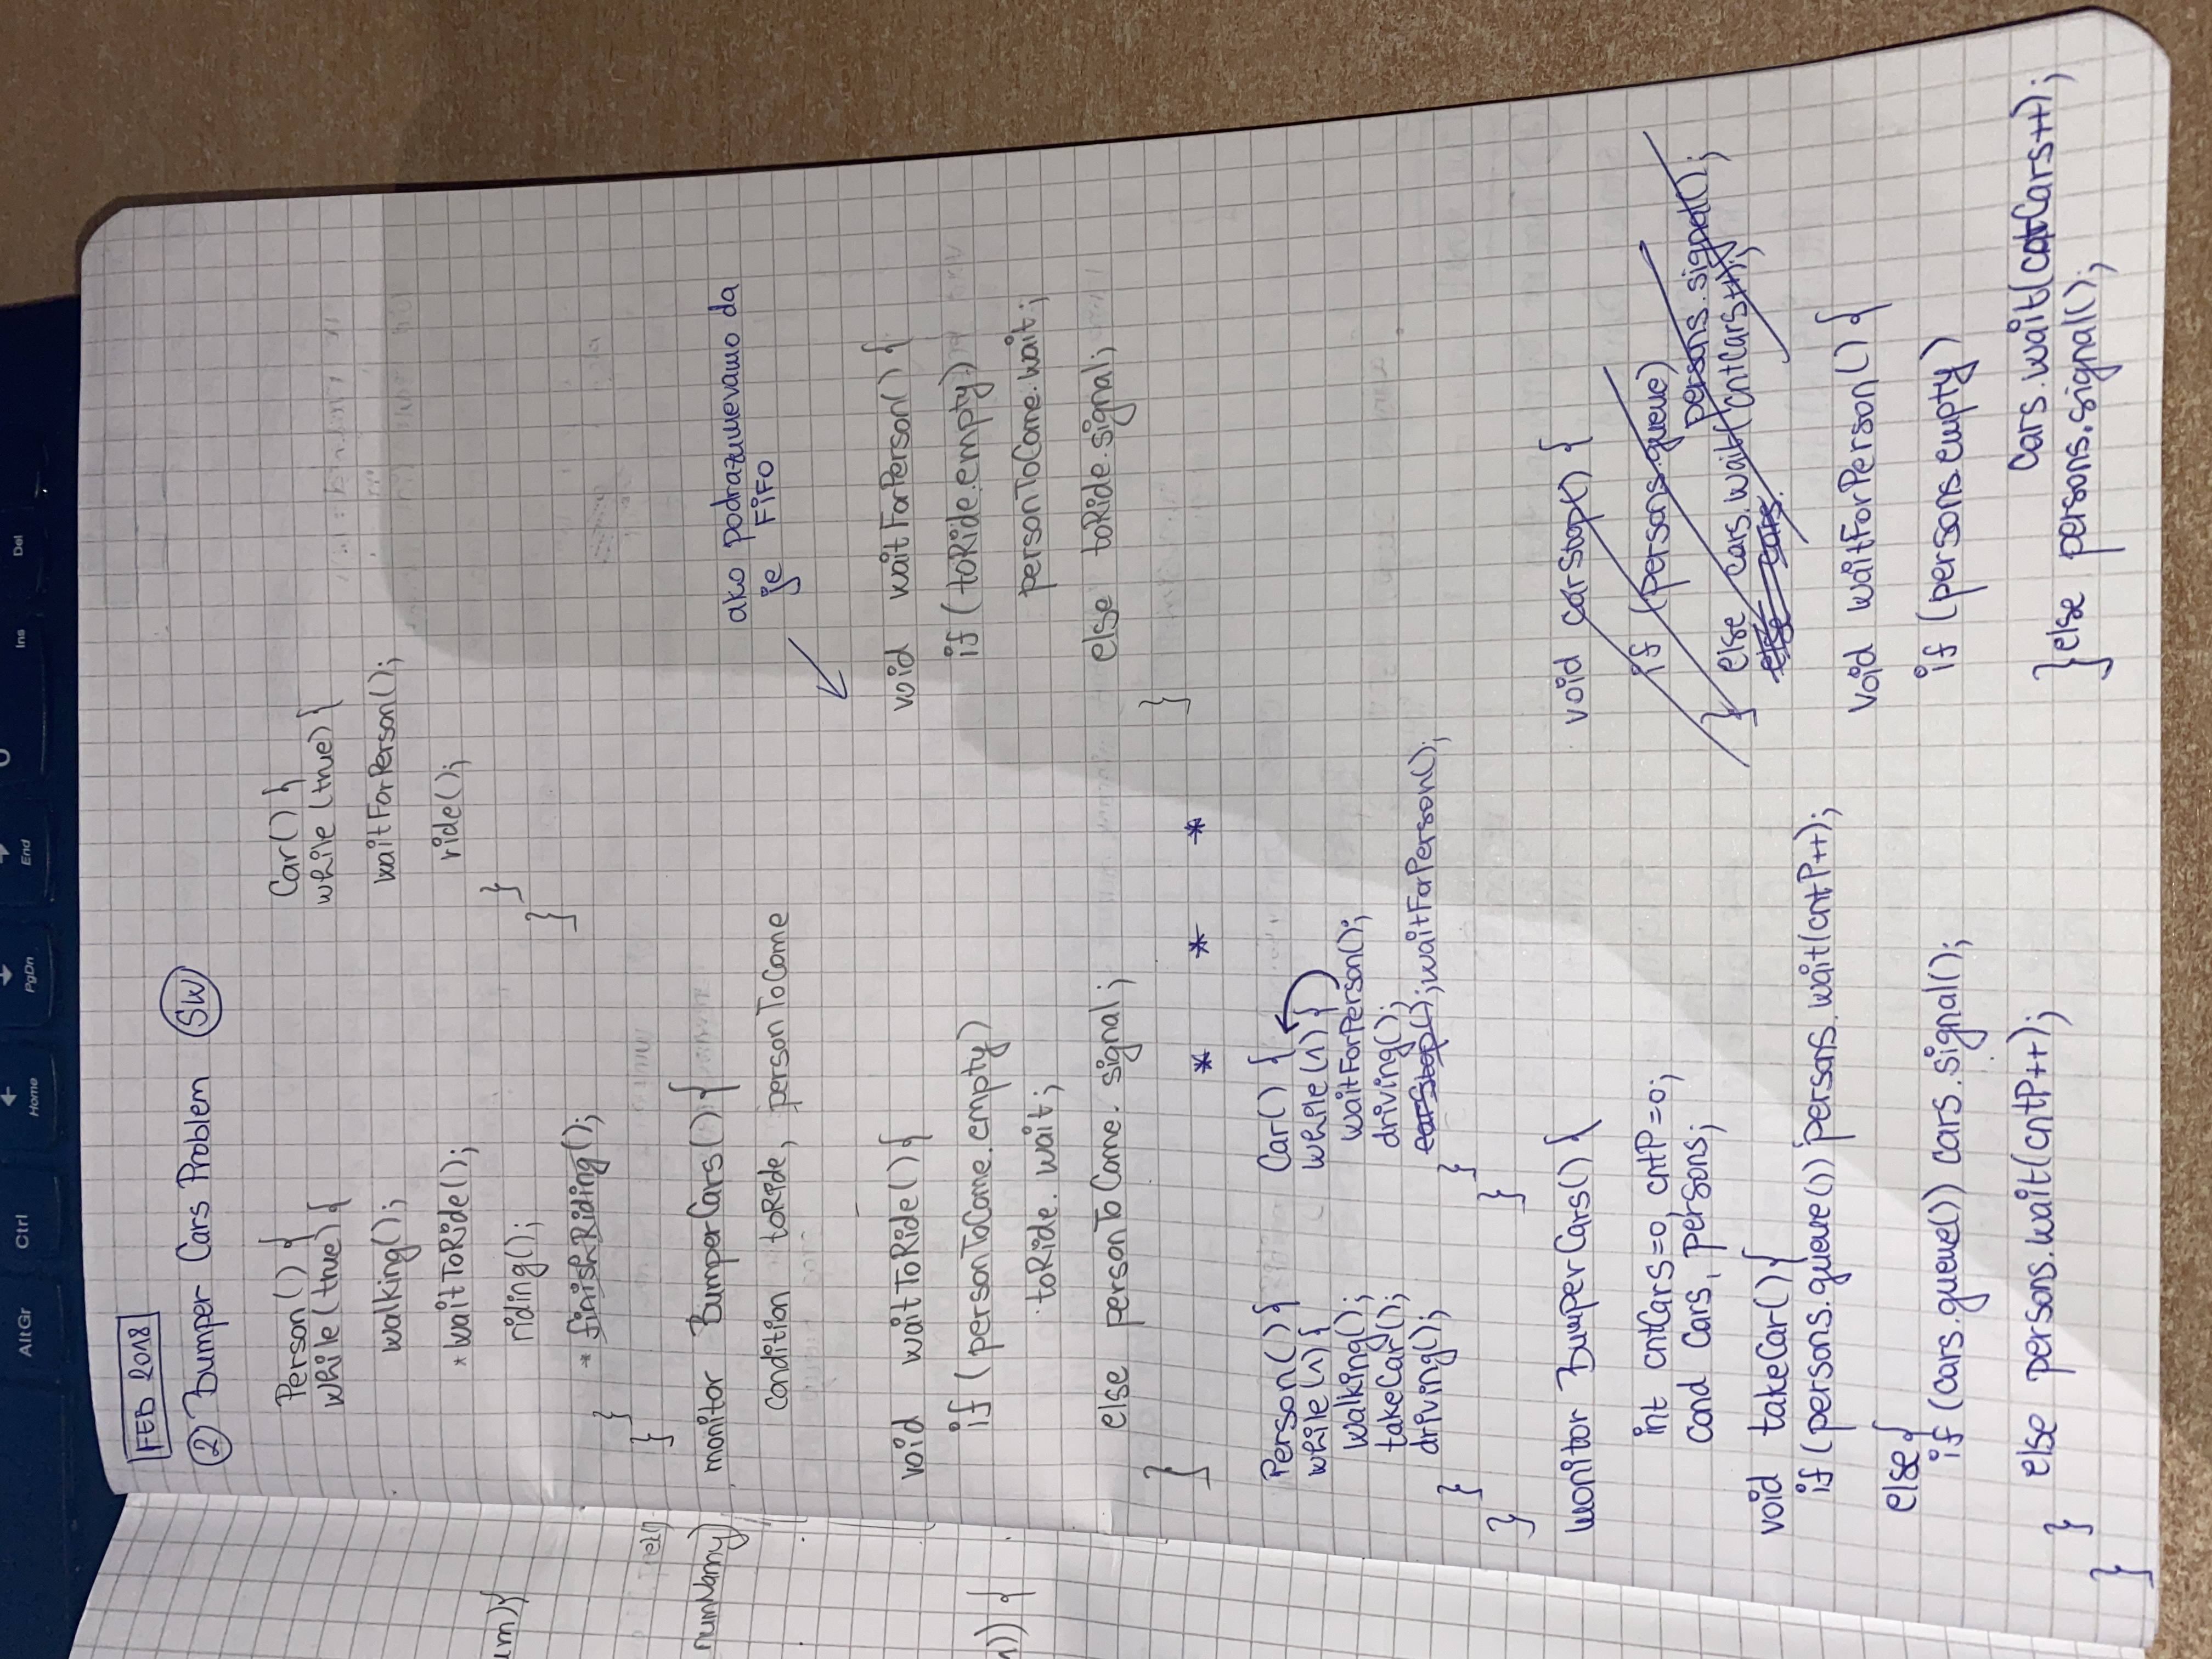 AltGr
Ctrl
Home
PgDn
End
Ins
Del
FEB 2018
2 Bumper Cars Problem SW
Person() {
while(true){
walking();
*waitToRide();
riding();
* finishRiding();
}
}
Car() {
while(true){
waitForPerson();
ride();
}
}
um){
numNanny)
)) {
monitor BumperCars() {
condition toRide, personToCome
ako podrazumevamo da
je FiFO
void waitToRide(){
if (personToCome.empty)
toRide. wait;
else personToCome. signal;
}
void waitForPerson() {
if (toRide.empty)
personToCome.wait;
else toRide.signal;
}
* * *
Person() {
while(1){
walking();
takeCar();
driving();
}
}
Car() {
while(1){
waitForPerson();
driving();
carStop();waitForPerson();
}
}
monitor BumperCars() {
int cntCars=0, cntP=0;
cond cars, persons;
void takeCar(){
if (persons.queue()) persons.wait(cntP++);
else{
if (cars.queue()) cars.signal();
else persons.wait(cntP++);
}
}
void carStop() {
if (persons.queue)
persons.signal();
} else cars.wait(cntCars++);
else cars.
void waitForPerson() {
if (persons.empty)
cars.wait(cntCars++);
}else persons.signal();